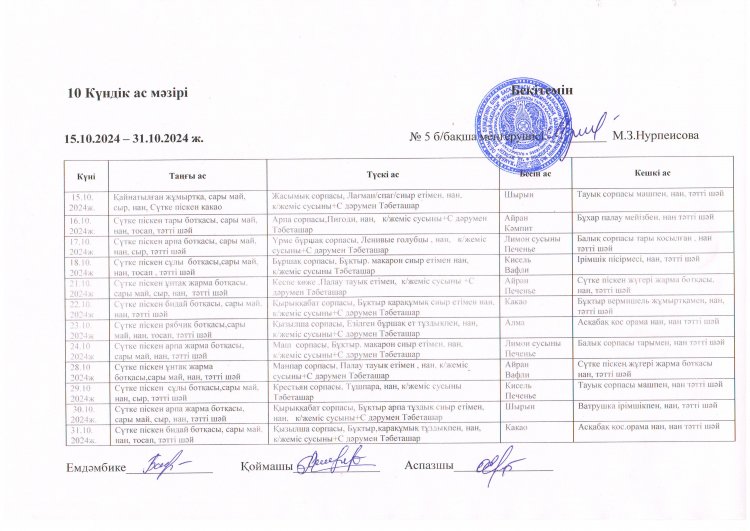 10 Күндік ас мәзірі
Бекітемін
15.10.2024 – 31.10.2024 ж.
№ 5 б/бақша меңгерушісі М.З.Нурпеисова
Күні Таңғы ас Түскі ас Бесін ас Кешкі ас
15.10. Қайнатылған жұмыртқа, сары май, Жасымық сорпасы, Лағман/спагг/сиыр етімен, нан, Шырын Тауық сорпасы машпен, нан, тәтті шәй
2024ж. сыр, нан, Сүтке піскен какао к/жеміс сусыны+С дәрумен Тәбеташар
16.10. Сүтке піскен тары ботқасы, сары май, Арпа сорпасы,Пигоди, нан, к/жеміс сусыны+С дәрумен Айран Бұхар палау мейізбен, нан тәтті шәй
2024ж. нан, тосап, тәтті шәй Тәбеташар Кәмпит
17.10. Сүтке піскен арпа ботқасы, сары май, Үрме бұршақ сорпасы, Ленивые голубцы , нан, к/жеміс Лимон сусыны Балық сорпасы тары қосылған , нан
2024ж нан, сыр, тәтті шәй сусыны+С дәрумен Тәбеташар Печенье тәтті шәй
18.10. Сүтке піскен сұлы ботқасы,сары май, Бұршақ сорпасы, Бұқтыр. макарон сиыр етімен нан, Кисель Ірімшік пісірмесі, нан, тәтті шәй
2024ж нан, тосап , тәтті шәй к/жеміс сусыны Тәбеташар Вафли
21.10. Сүтке піскен ұнтақ жарма ботқасы, Кеспе көже .Палау тауық етімен, к/жеміс сусыны +С Айран Сүтке піскен жүгері жарма ботқасы,
2024ж сары май, сыр, нан, тәтті шәй дәрумен Тәбеташар Печенье нан, тәтті шәй
22.10. Сүтке піскен бидай ботқасы, сары май, Қырыққабат сорпасы, Бұқтыр қарақұмық сиыр етімен нан, Какао Бұқтыр вермишель жұмыртқамен, нан,
2024ж. нан, тәтті шәй к/жеміс сусыны+С дәрумен Тәбеташар тәтті шәй
23.10. Сүтке піскен рябчик ботқасы,сары Қызылша сорпасы, Езілген бұршақ ет тұздықпен, нан, Алма Асқабақ қос орама нан, нан тәтті шәй
2024ж. май, нан, тосап, тәтті шәй к/жеміс сусыны+С дәрумен Тәбеташар
24.10 Сүтке піскен арпа жарма ботқасы, Маш сорпасы, Бұқтыр. макарон сиыр етімен, нан, Лимон сусыны Балық сорпасы тарымен, нан тәтті шәй
2024ж сары май, нан, тәтті шәй к/жеміс сусыны+С дәрумен Тәбеташар Печенье
28.10 Сүтке піскен ұнтақ жарма Манпар сорпасы, Палау тауық етімен , нан, к/жеміс Айран Сүтке піскен жүгері жарма ботқасы
2024ж. ботқасы,сары май, нан, тәтті шәй сусыны+С дәрумен Тәбеташар Вафли нан, тәтті шәй
29.10 Сүтке піскен сұлы ботқасы, сары май, Крестьян сорпасы, Тұшпара, нан, к/жеміс сусыны Кисель Тауық сорпасы машпен, нан, тәтті шәй
2024ж нан, сыр, тәтті шәй Тәбеташар Печенье
30.10. Сүтке піскен арпа жарма ботқасы, Қырыққабат сорпасы, Бұқтыр арпа тұздық сиыр етімен, Шырын Ватрушка ірімшікпен, нан, тәтті шәй
2024ж. сары май, сыр, нан, тәтті шәй нан, к/жеміс сусыны+С дәрумен Тәбеташар
31.10. Сүтке піскен бидай ботқасы, сары май, Қызылша сорпасы, Бұқтыр,қарақұмық тұздықпен, нан, Какао Асқабақ қос.орама нан, нан тәтті шәй
2024ж. нан, тосап, тәтті шәй к/жеміс сусыны+С дәрумен Тәбеташар
Емдәмбике Қоймашы Аспазшы